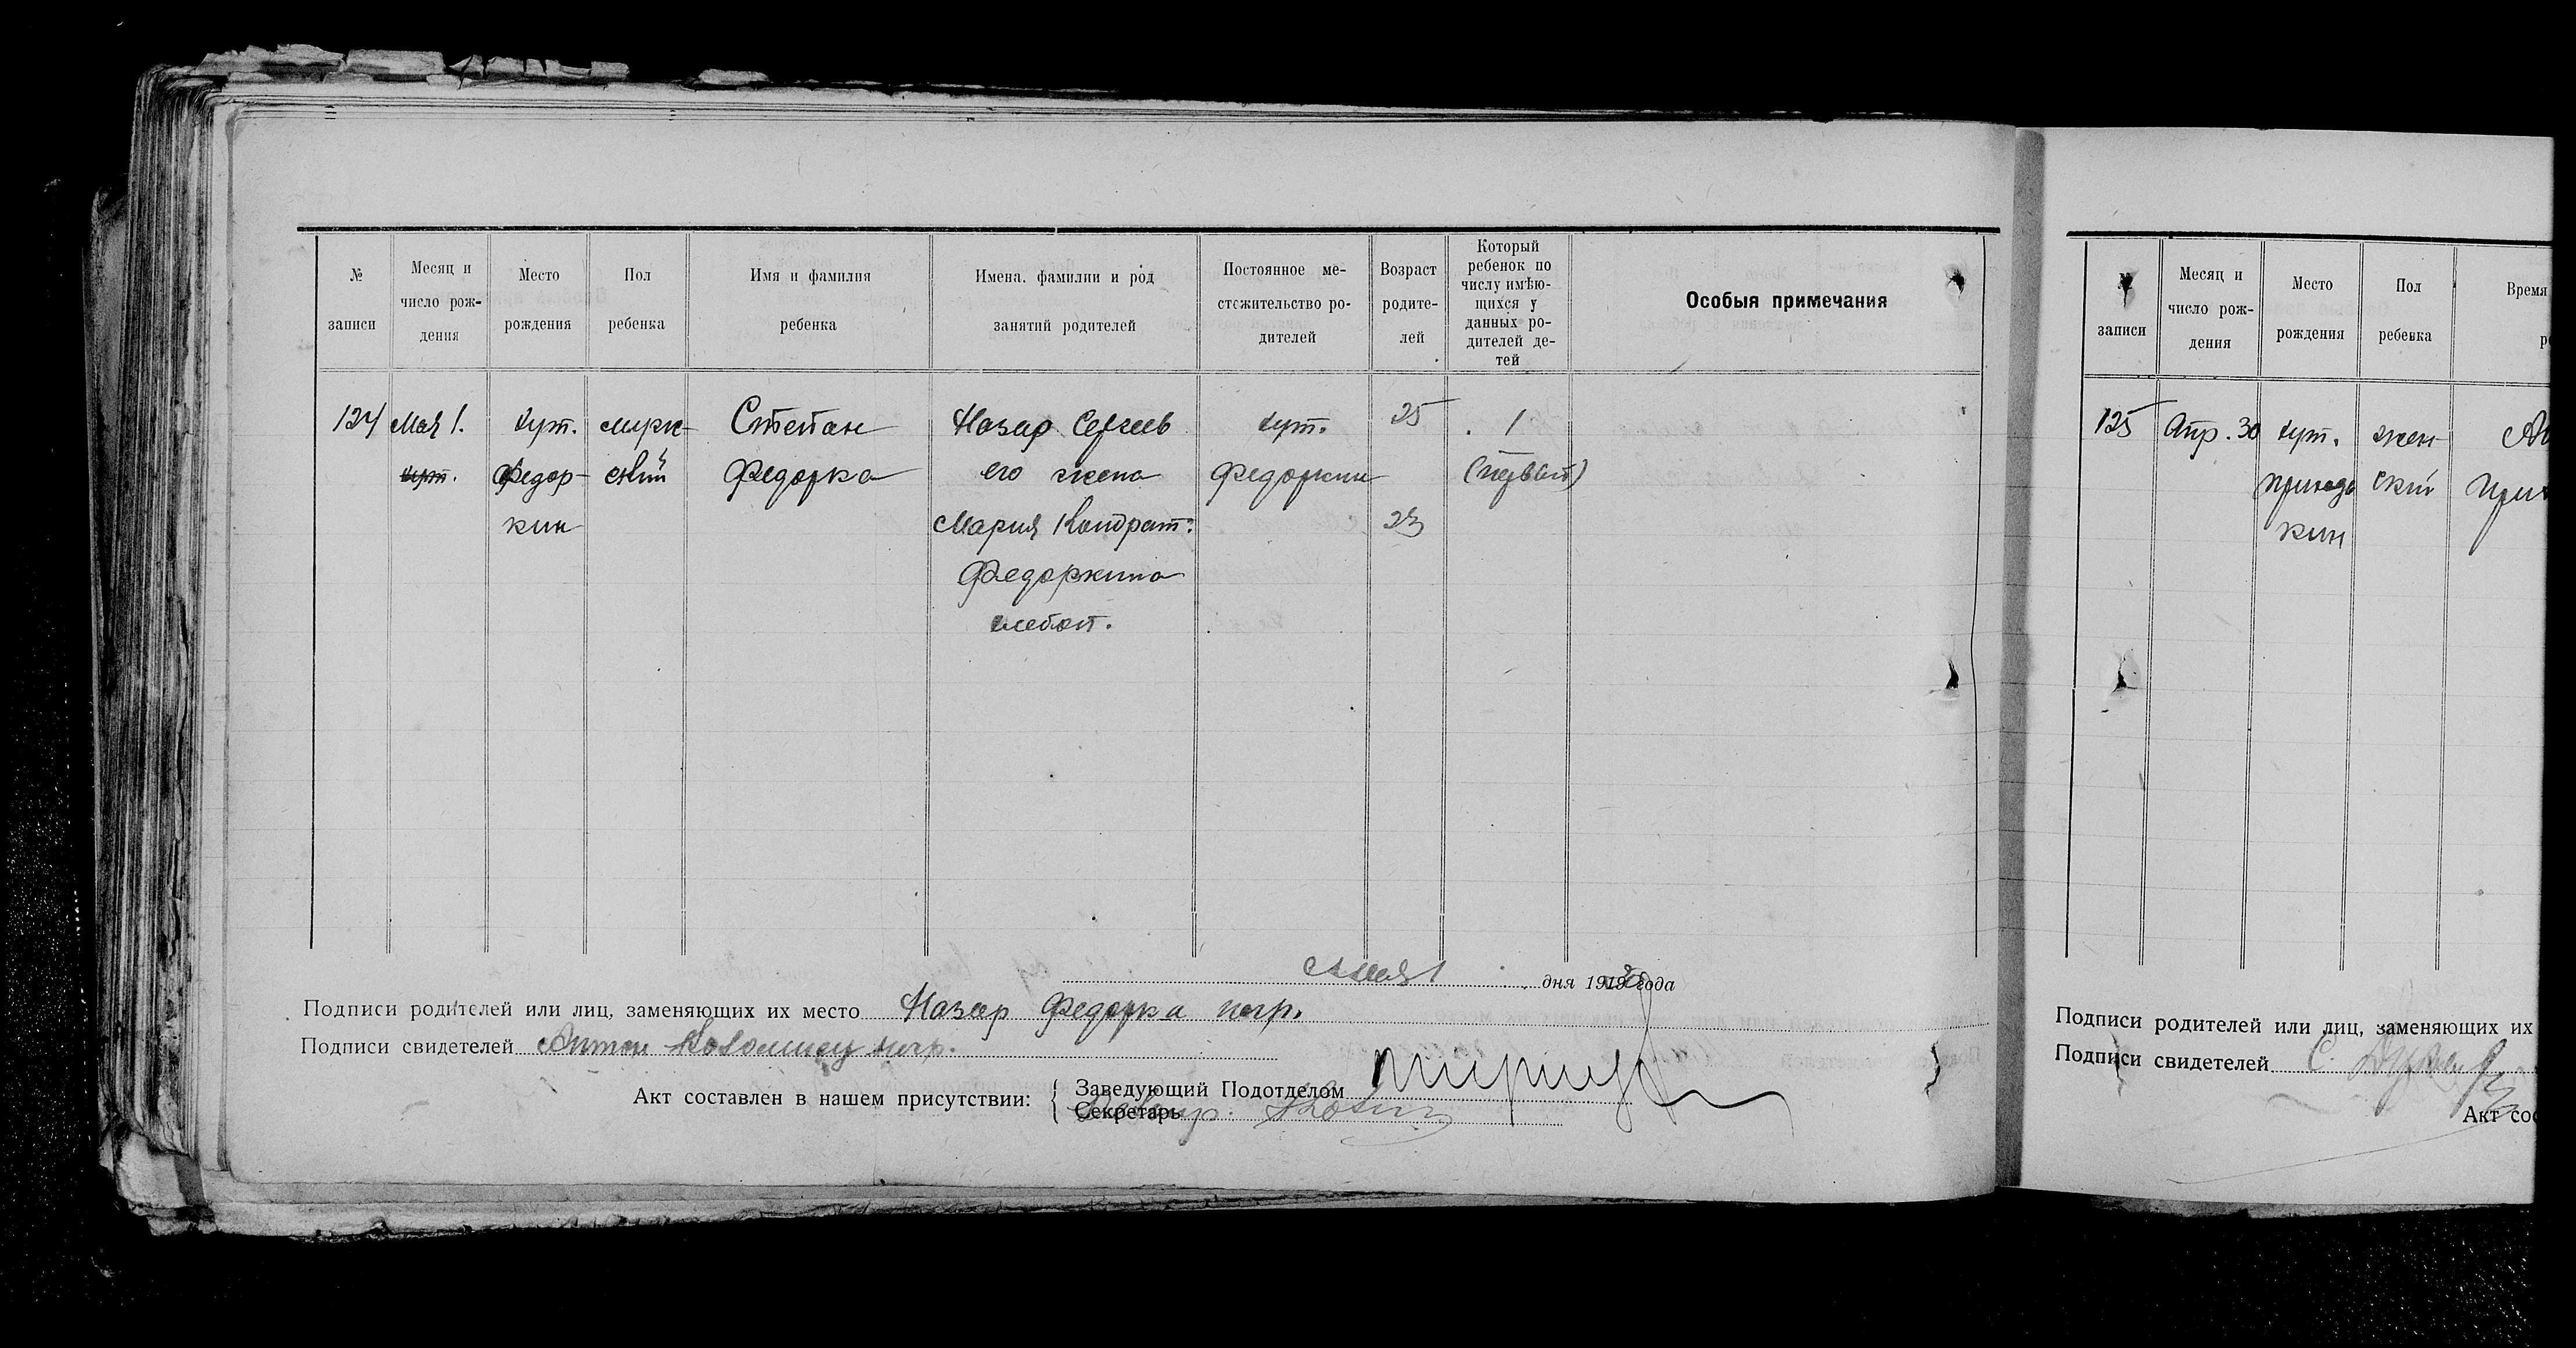 № записи
Месяц и число рождения
Место рождения
Пол ребенка
Имя и фамилия ребенка
Имена, фамилии и род занятий родителей
Постоянное местожительство родителей
Возраст родителей
Который ребенок по числу имѣющихся у данных родителей детей
Особыя примечания
124 Мая 1. хут. мужс- Степан Назар Сергеев хут. 25 1
хут. Федор- ский Федорка его жена Федоркин (первый)
кин Мария Кондрат. 23
Федоркина
хлебоп.
Мая 1 дня 1919 года
Подписи родителей или лиц, заменяющих их место Назар Федорка негр.
Подписи свидетелей Антон Коломиец негр.
Акт составлен в нашем присутствии:
Заведующий Подотделом
Секретарь
№ записи
Месяц и число рождения
Место рождения
Пол ребенка
Время
125 Апр. 30 хут. жен-
ский
кин
Подписи родителей или лиц, заменяющих их
Подписи свидетелей С.
Акт сос